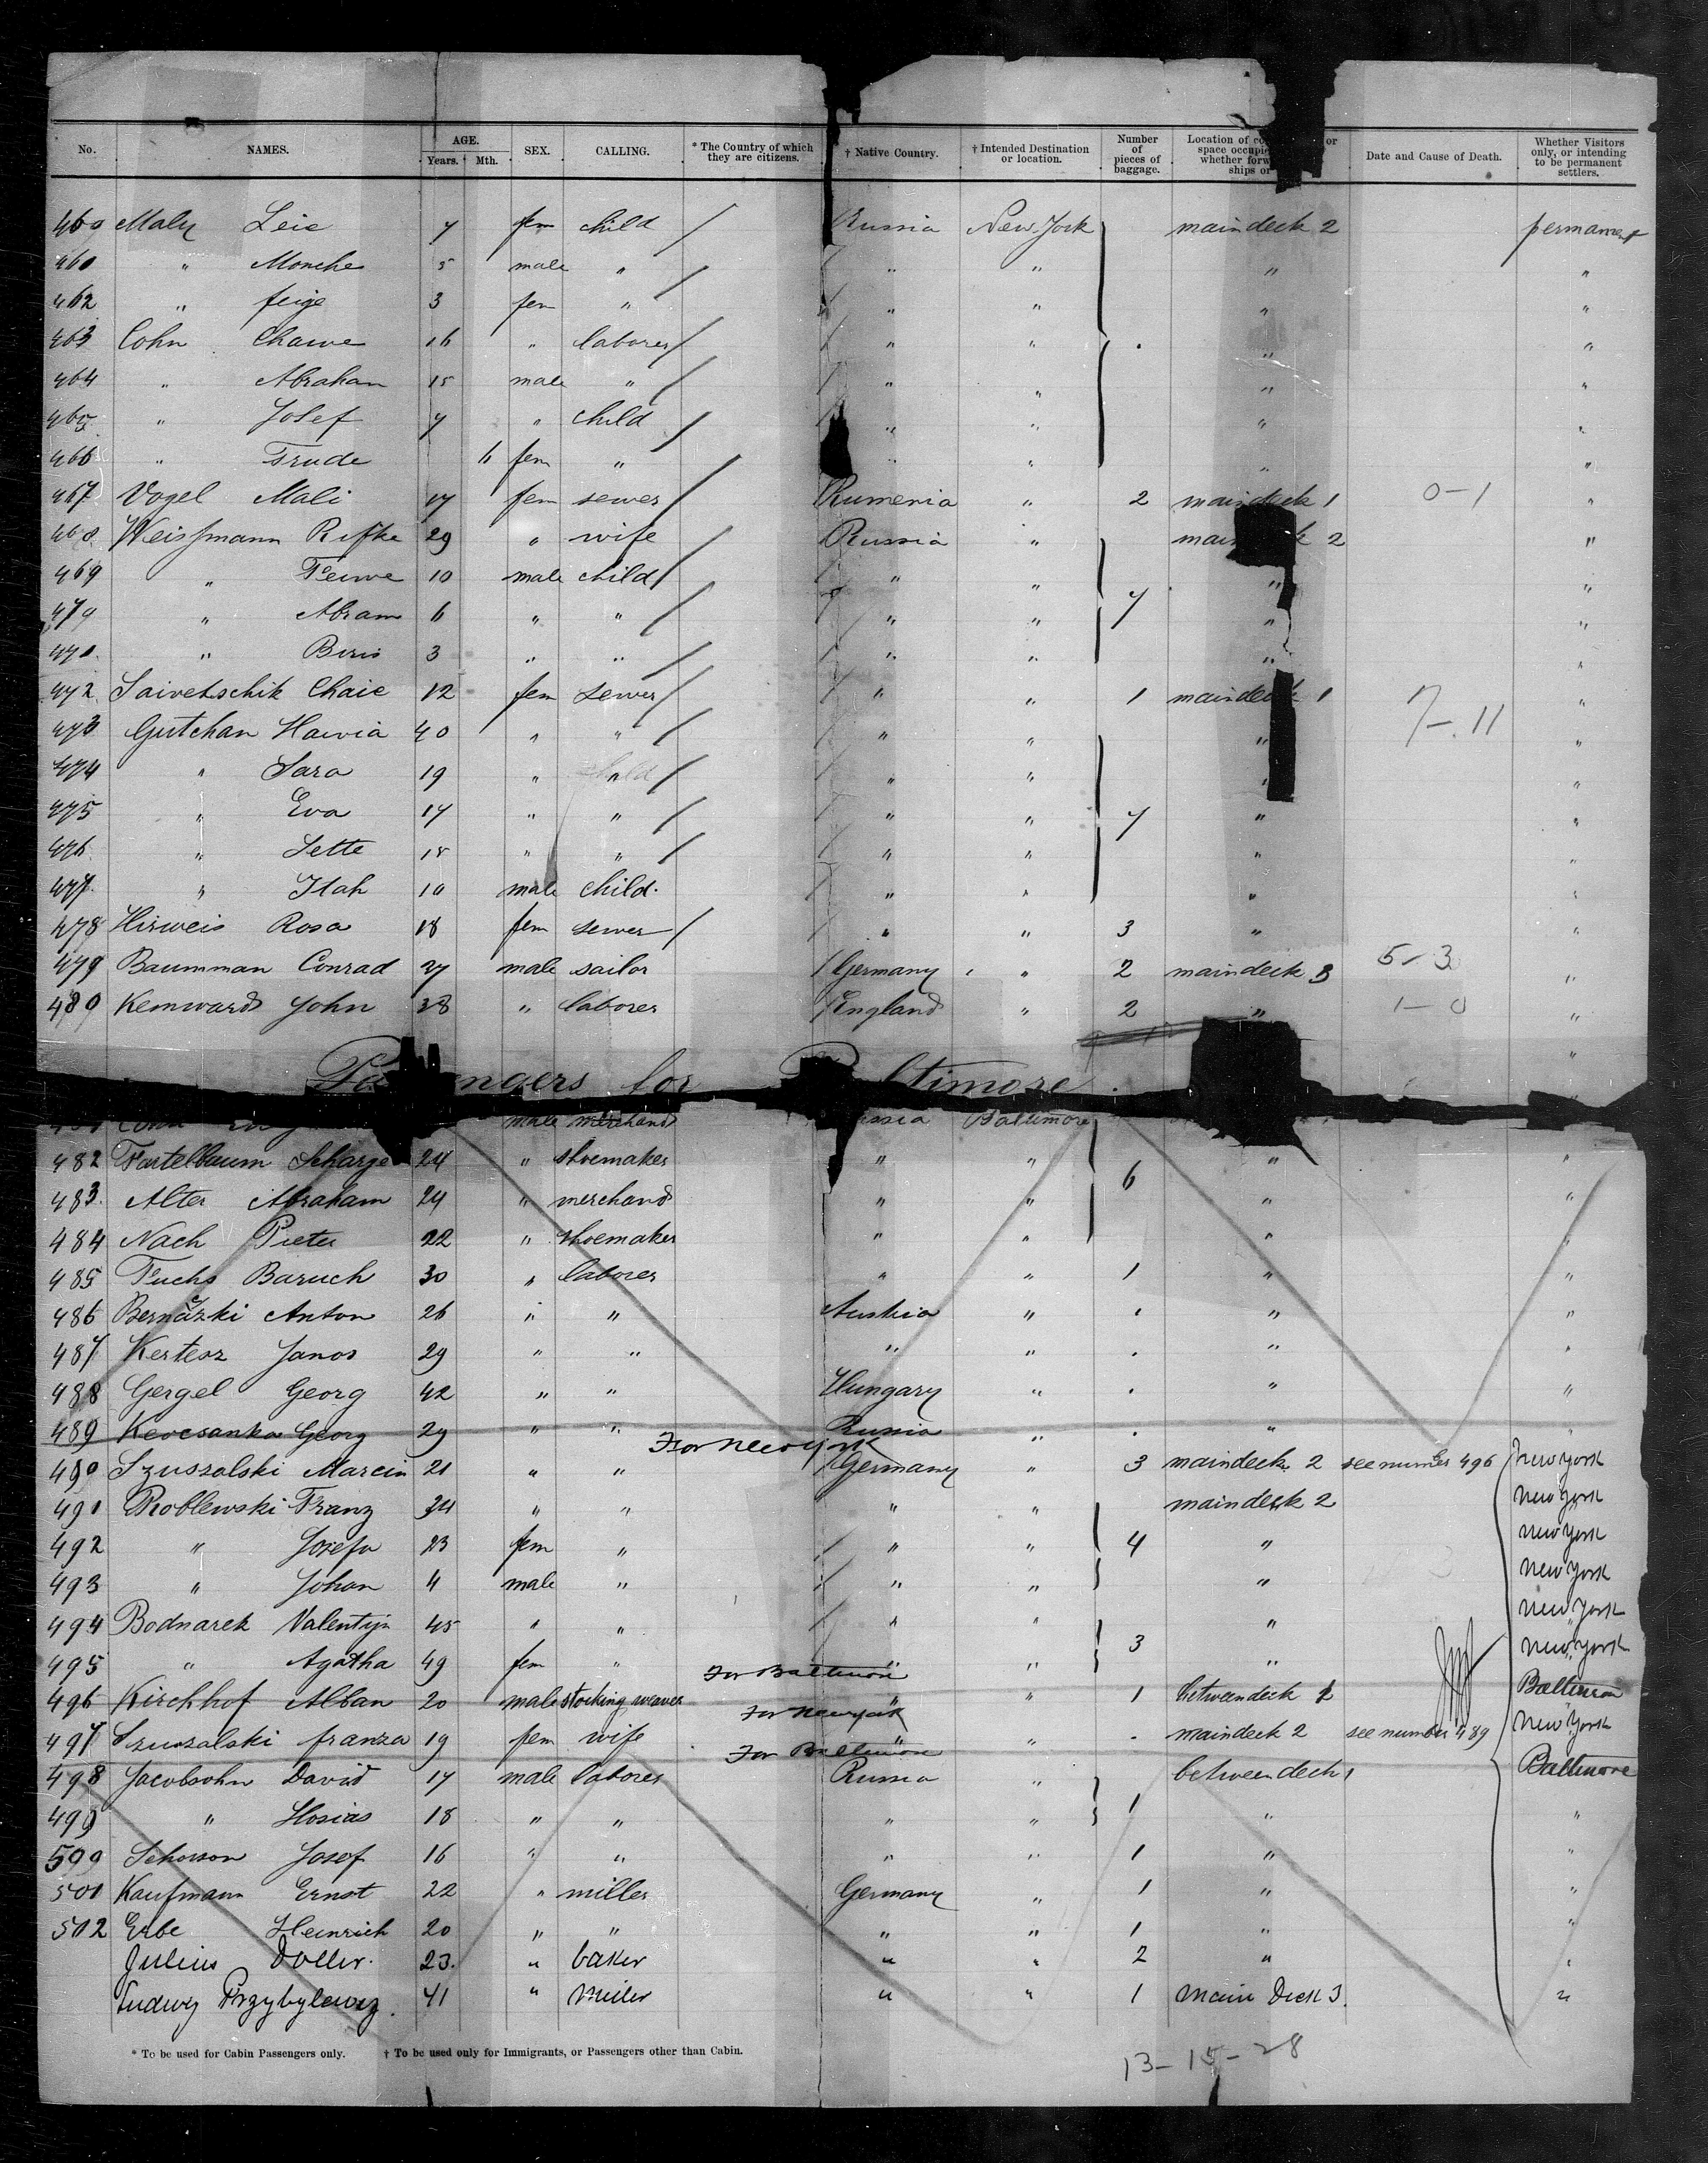 No. NAMES. AGE. Years. Mth. SEX. CALLING. * The Country of which they are citizens. † Native Country. † Intended Destination or location. Number of pieces of baggage. Location of space whether ships or Date and Cause of Death. Whether Visitors only, or intending to be permanent settlers.
460 Maly Leie 7 fem child / Russia New York maindeck 2 permament
461 " Monche 5 male " / " " " "
462 " feige 3 fem " " " " "
463 Cohn Chawe 16 " laborer / " " " "
464 " Abraham 15 male " / " " " "
465 " Josef 7 " child / " " " "
466 " Frude 11 fem " " " " "
467 Vogel Mali 17 fem sewer / Rumenia " 2 maindeck 1 0-1 "
468 Weissmann Rifke 29 " wife / Russia " 2 "
469 " Feiwe 10 male child / " " " "
470 " Abram 6 " " / " " 7 " "
471 " Beris 3 " " / " " " "
472 Saivetschik Chaie 12 fem sewer / " " 1 maindeck 1 "
473 Gutchan Hawia 40 " " / " " " 7-11 "
474 " Sara 19 " " / " " " "
475 " Eva 17 " " / " " 7 " "
476 " Sette 15 " " / " " " "
477 " Itah 10 male child. " " " "
478 Hirweis Rosa 18 fem sewer / " " 3 " "
479 Baumman Conrad 27 male sailor Germany " 2 maindeck 3 5-3 "
480 Kemward John 38 " laborer England " 2 " 1-0 "
male merchand Baltimore
482 Fartelbaum Scharge 24 " shoemaker " " " "
483 Alter Abraham 24 " merchand " " 6 " "
484 Nach Pieter 22 " shoemaker " " " "
485 Fuchs Baruch 30 " laborer " " 1 " "
486 Bernazki Anton 26 " " Austria " " "
487 Kertesz Janos 29 " " " " " "
488 Gergel Georg 42 " " Hungary " " "
489 Kevesanka Georg 29 " " Russia " " "
For New York
490 Szuszalski Marcin 21 " " Germany " 3 maindeck 2 see numer 496 New York
491 Roblewski Franz 34 " " " " maindeck 2 New York
492 " Josefa 23 fem " " " 4 " New York
493 " Johan 4 male " " " " New York
494 Bodnarek Valentyn 45 " " " " 3 " New York
495 " Agatha 49 fem " " " " New York
For Baltimore
496 Kirchhof Alban 20 male stocking weaver " " 1 betweendeck 1 Baltimore
For New York
497 Szuszalski franza 19 fem wife " " maindeck 2 see number 489 New York
For Baltimore
498 Jacobsohn David 17 male laborer Russia " betweendeck 1 Baltimore
499 " Hosias 18 " " " " 1 " "
500 Schorson Josef 16 " " " " 1 " "
501 Kaufmann Ernst 22 " miller Germany " 1 " "
502 Erbe Heinrich 20 " " " " 1 " "
Julius Doller. 23. " baker " " 2 " "
Ludwig Przybylewiz. 41 " Miller " " 1 Main Deck 3. "
* To be used for Cabin Passengers only. † To be used only for Immigrants, or Passengers other than Cabin.
13-15-28